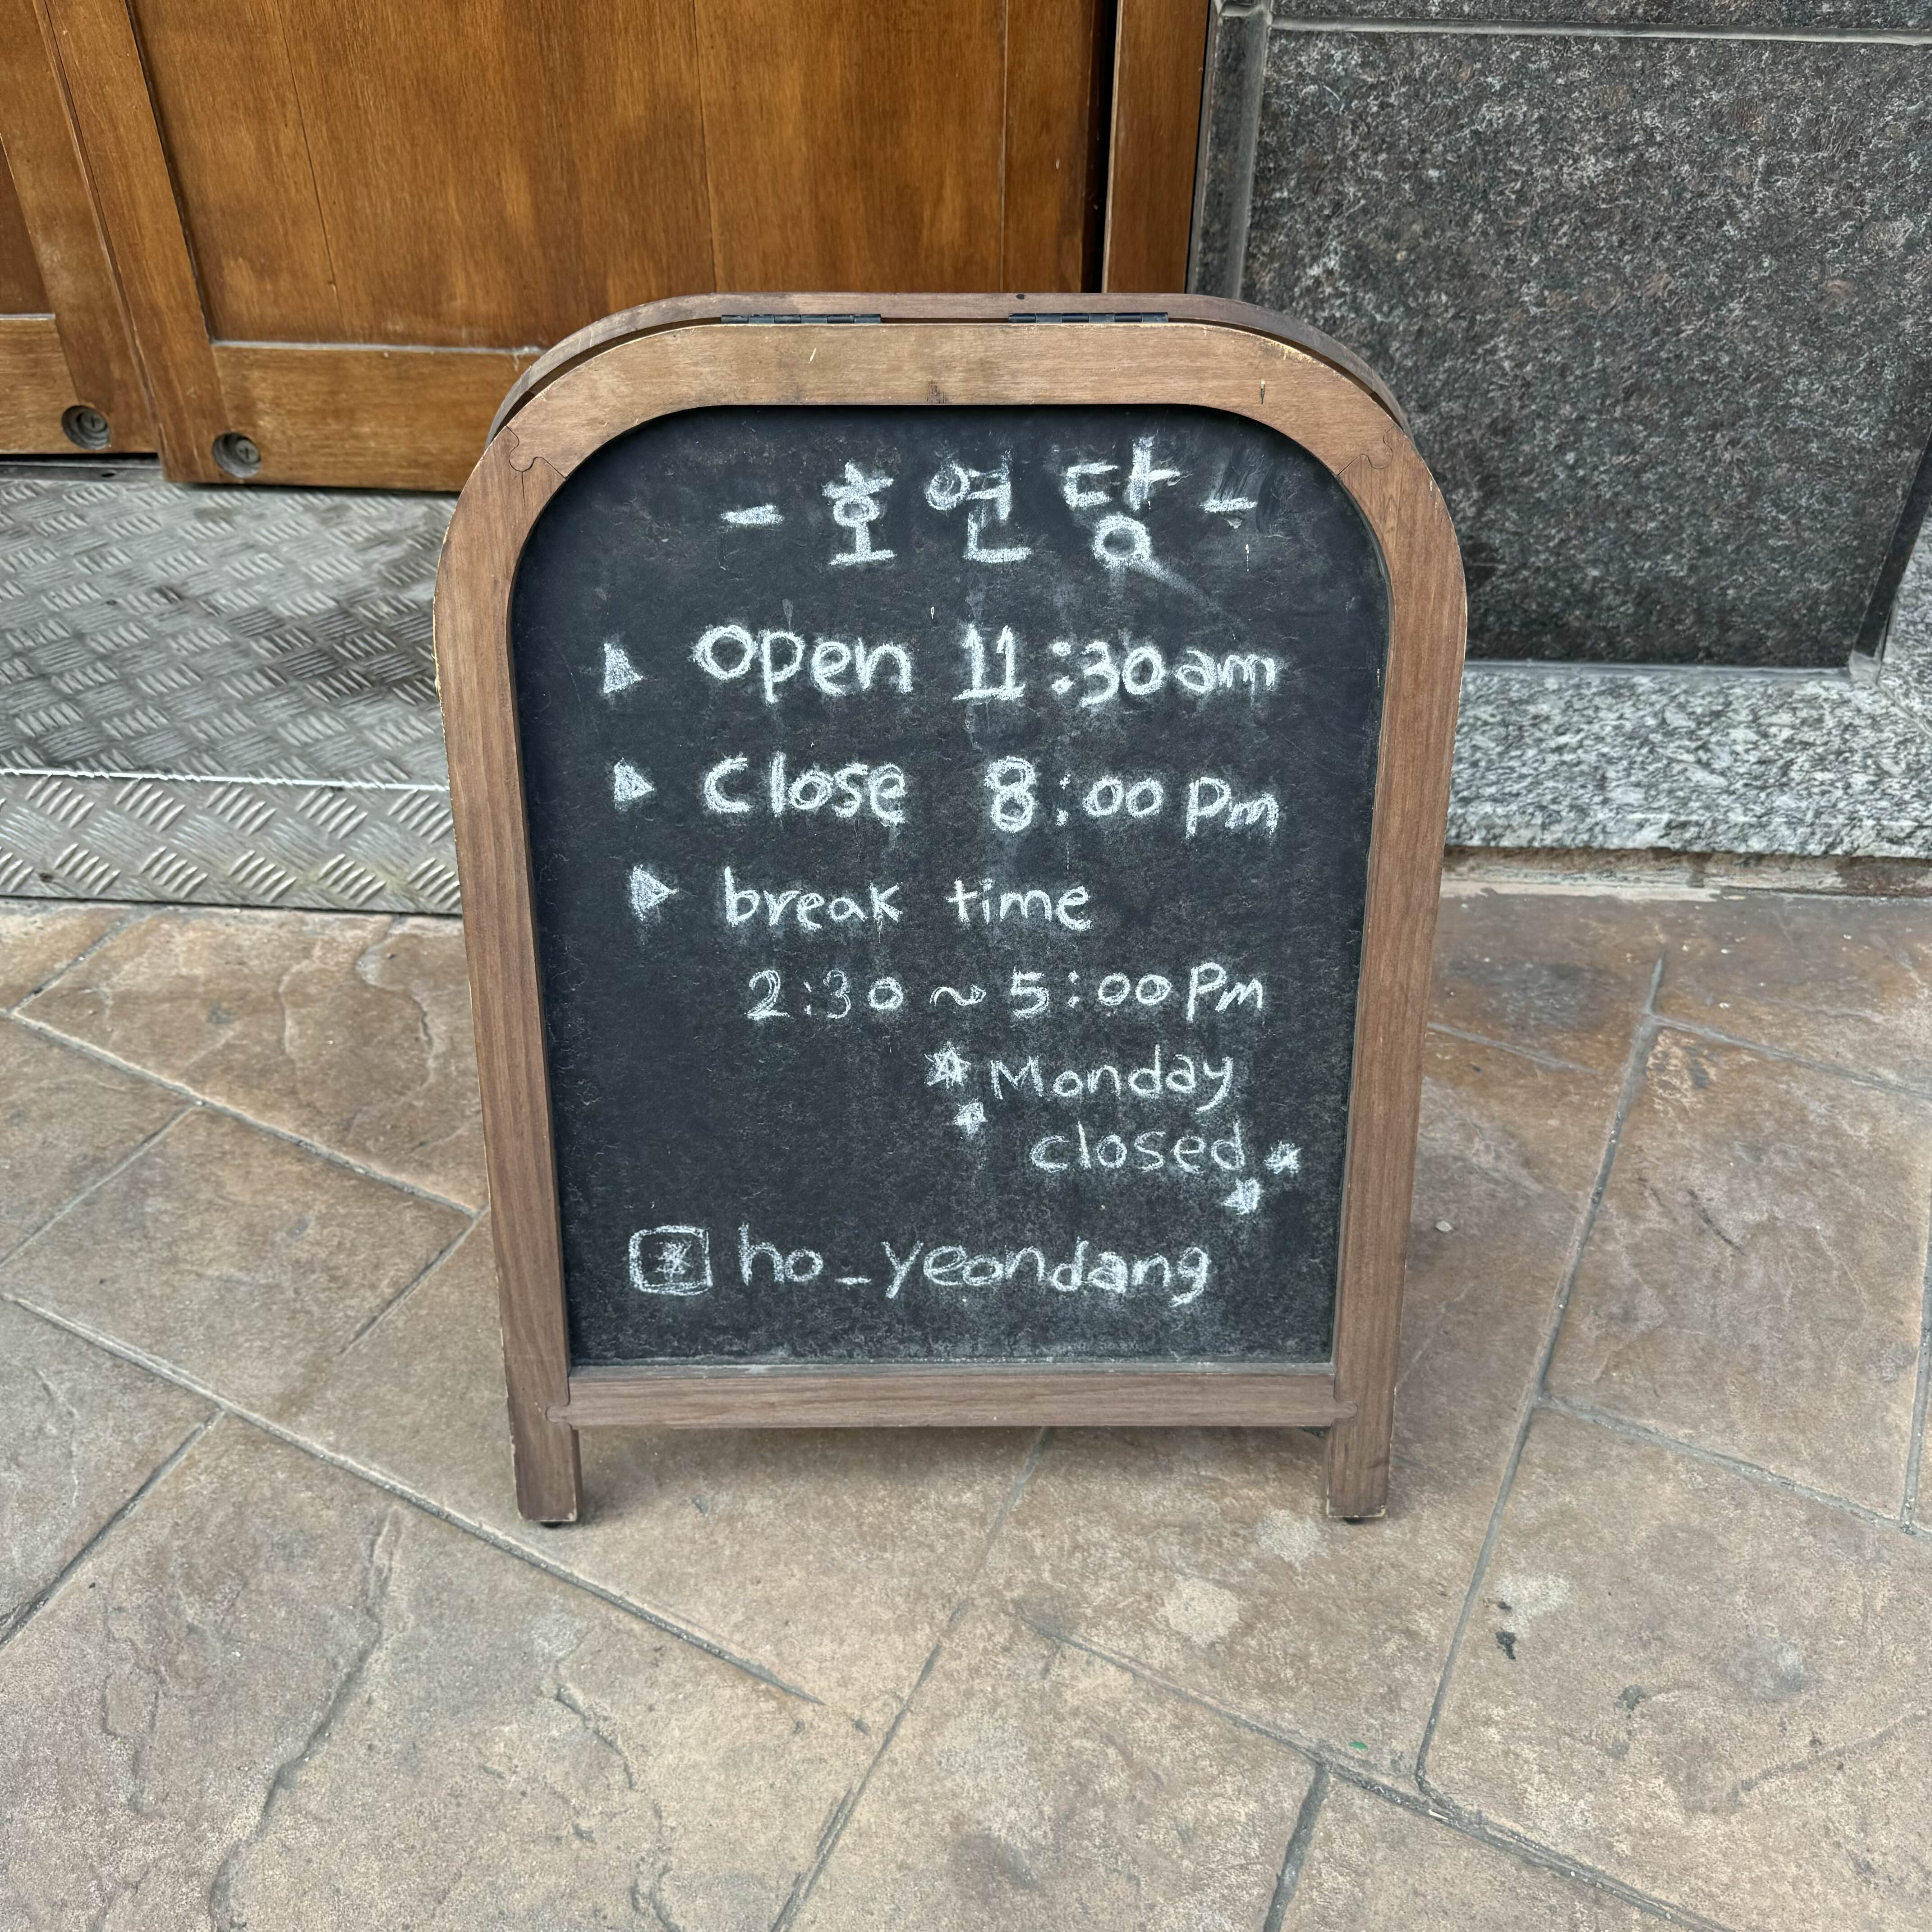 - 호연당 -
open 11:30am
close 8:00 pm
break time
2:30 ~ 5:00 Pm
Monday
closed
ho_yeondang